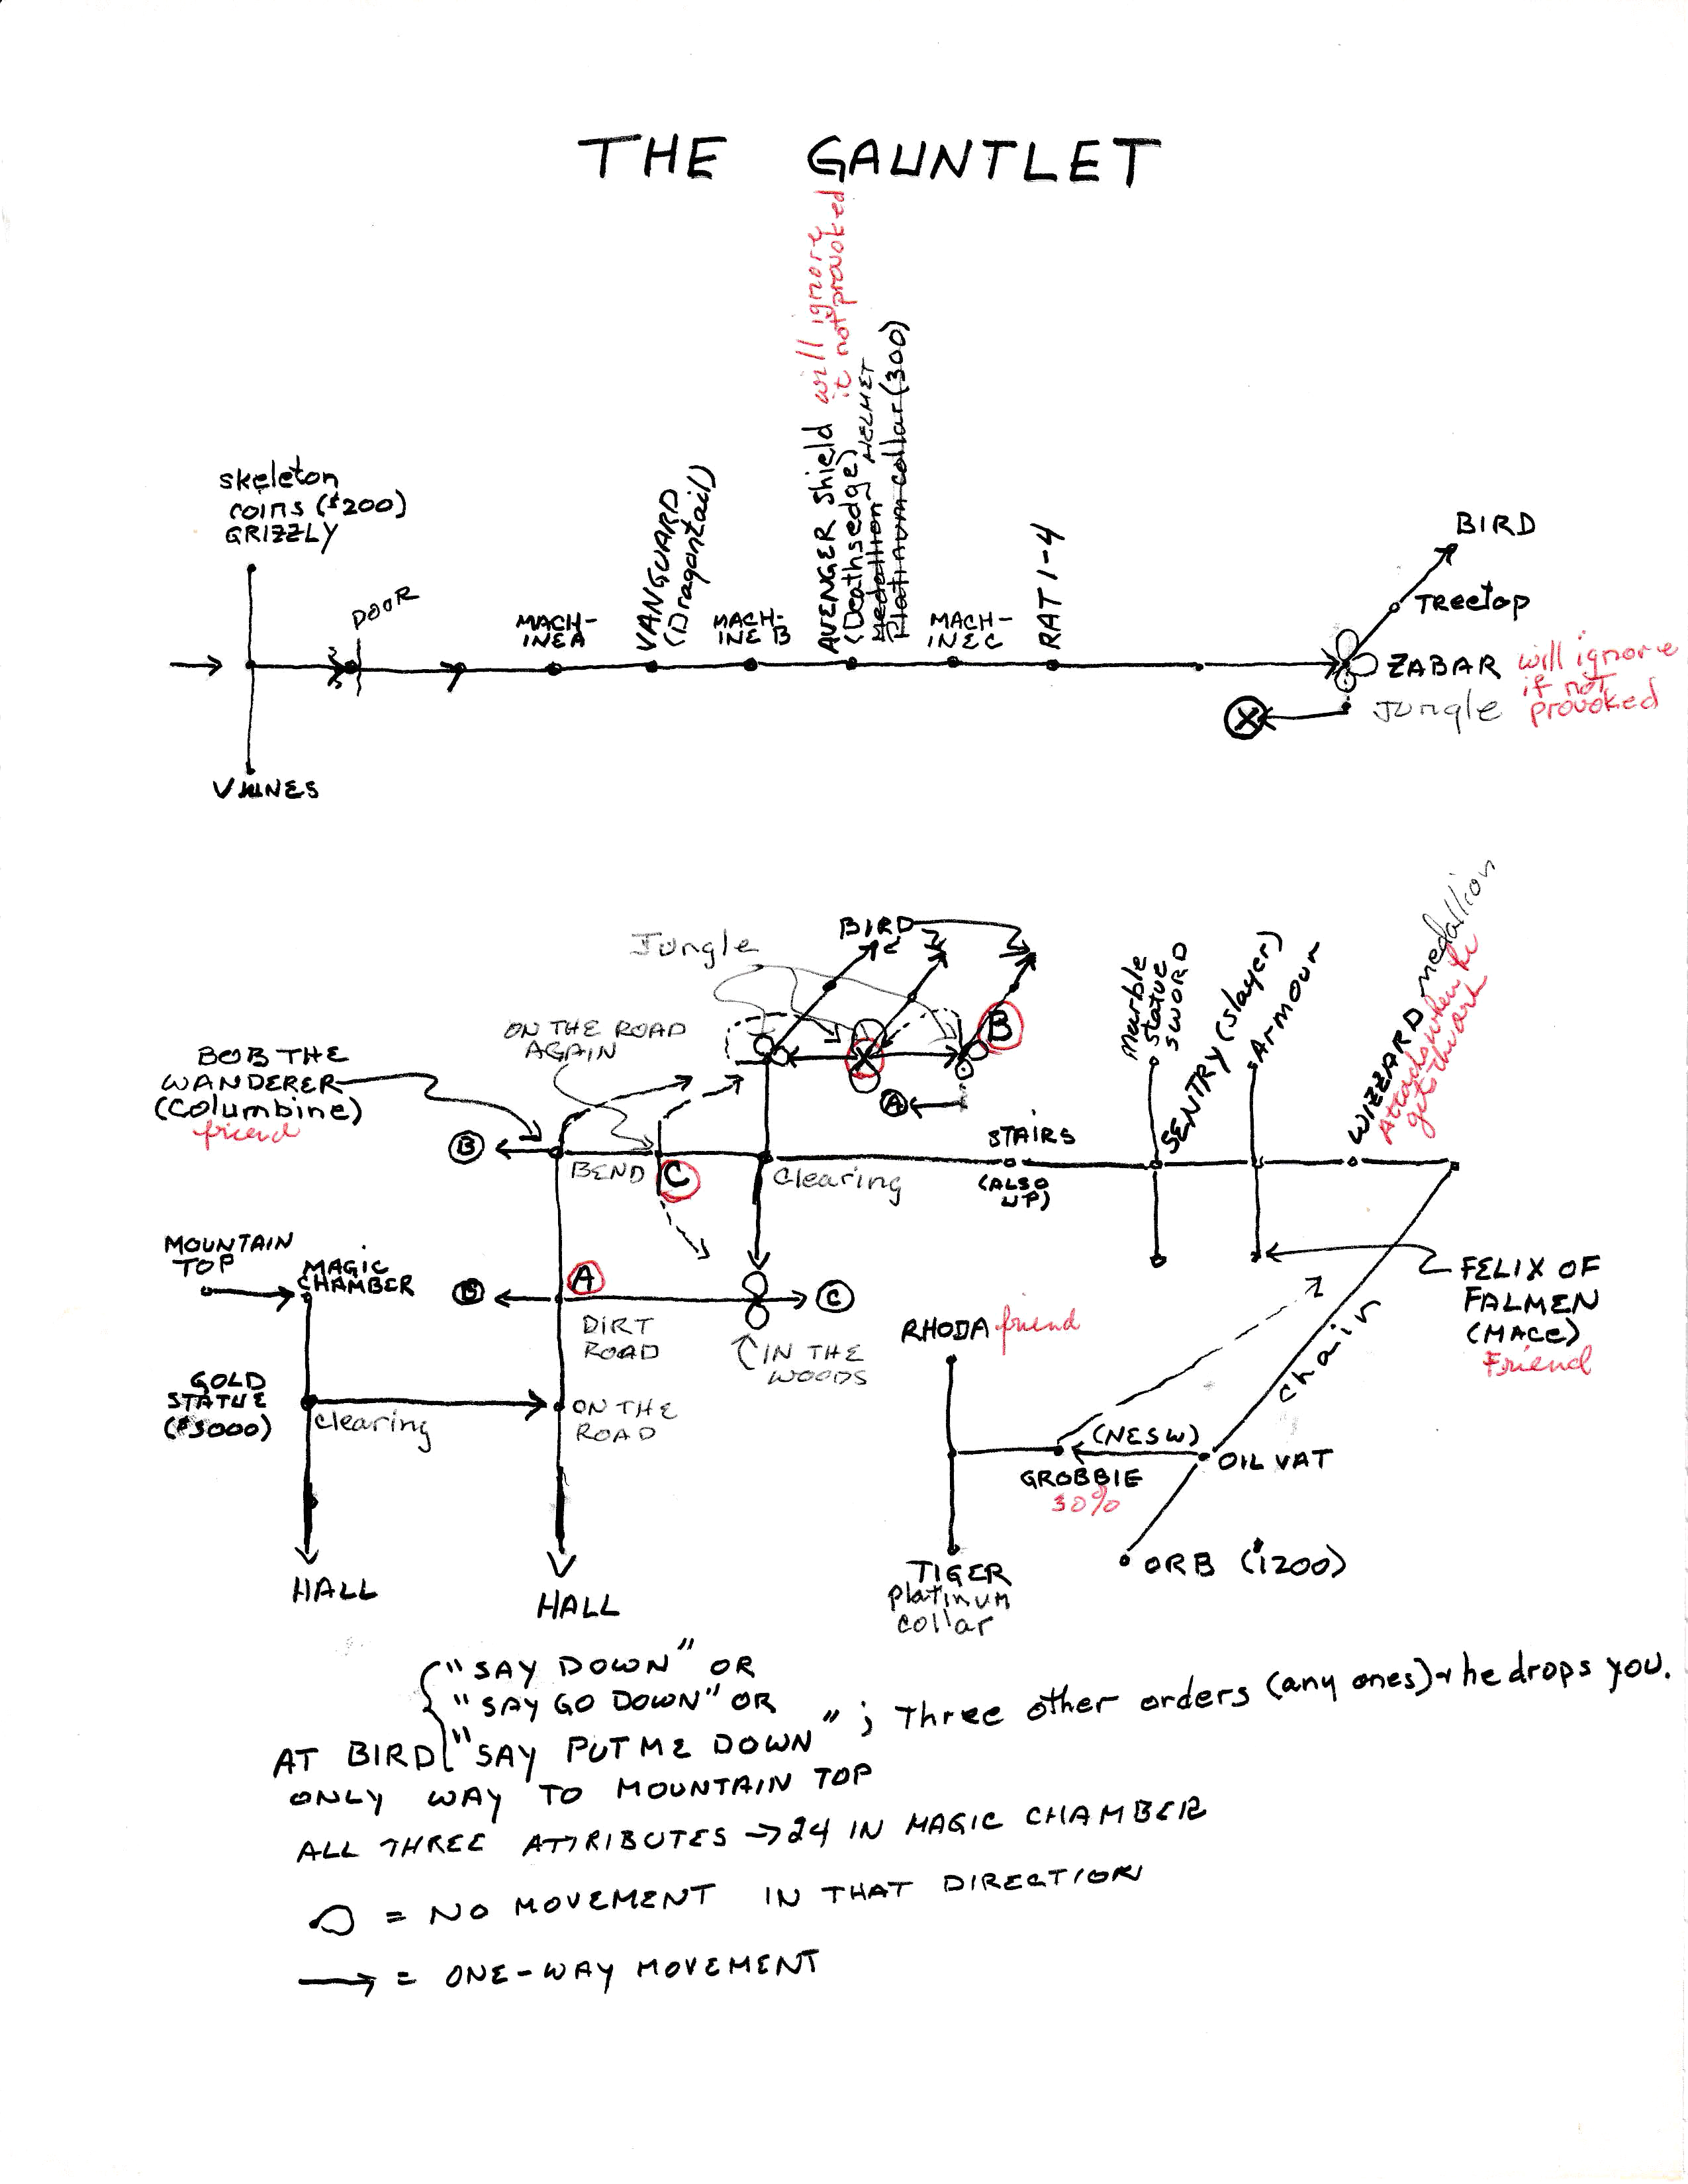 THE GAUNTLET
will ignore
if not provoked
skeleton
coins ($200)
GRIZZLY
DOOR
MACH-
INE A
VANGUARD
(Dragontail)
MACH-
INE B
AVENGER shield
(Deathsedge)
Medallion HELMET
Platinum collar (300)
MACH-
INE C
RAT 1-4
BIRD
TREETOP
ZABAR will ignore
if not
provoked
Jungle
X
VINES
BIRD
Jungle
ON THE ROAD
AGAIN
BOB THE
WANDERER
(Columbine)
friend
X
B
A
B
BEND
C
Clearing
STAIRS
(ALSO
UP)
Marble
statue
SWORD
SENTRY (Slayer)
Armour
WIZZARD medallion
Attacks when he
gets
MOUNTAIN
TOP
MAGIC
CHAMBER
B
A
C
DIRT
ROAD
IN THE
WOODS
GOLD
STATUE
($3000)
Clearing
ON THE
ROAD
HALL
HALL
RHODA friend
FELIX OF
FALMEN
(MACE)
Friend
chain
(NESW)
GROBBIE
30%
OIL VAT
ORB ($1200)
TIGER
platinum
collar
"SAY DOWN" OR
"SAY GO DOWN" OR
AT BIRD "SAY PUT ME DOWN"; Three other orders (any ones) → he drops you.
ONLY WAY TO MOUNTAIN TOP
ALL THREE ATTRIBUTES → 24 IN MAGIC CHAMBER
= NO MOVEMENT IN THAT DIRECTION
→ = ONE-WAY MOVEMENT